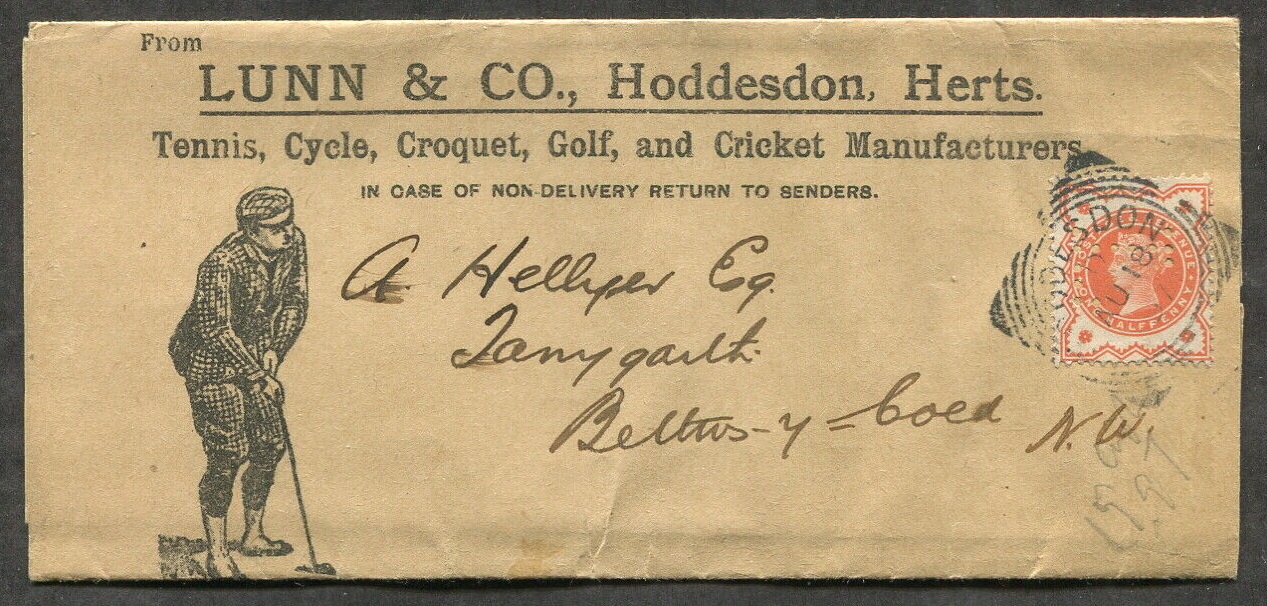 From
LUNN & CO., Hoddesdon, Herts.
Tennis, Cycle, Croquet, Golf, and Cricket Manufacturers
IN CASE OF NON-DELIVERY RETURN TO SENDERS.
A. Hellyer Esq.
Tanygarth.
Bettws-y-Coed N.W.
POSTAGE & REVENUE
ONE HALFPENNY
HODDESDON